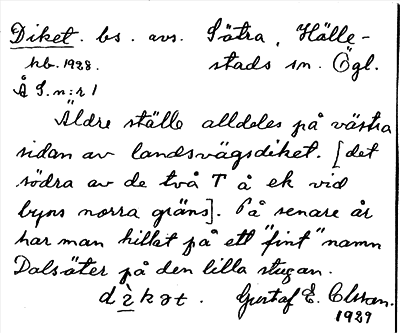 Diket. bs. avs. Sätra, Hälle-
hb. 1928. stads sn. Ögl.
Å S. n:r 1
Äldre ställe alldeles på västra
sidan av landsvägsdiket. [det
södra av de två T å ek vid
byns norra gräns]. På senare år
har man hittat på ett "fint" namn
Dalsäter på den lilla stugan.
d ì k ə t. Gustaf E. Olsson.
1929